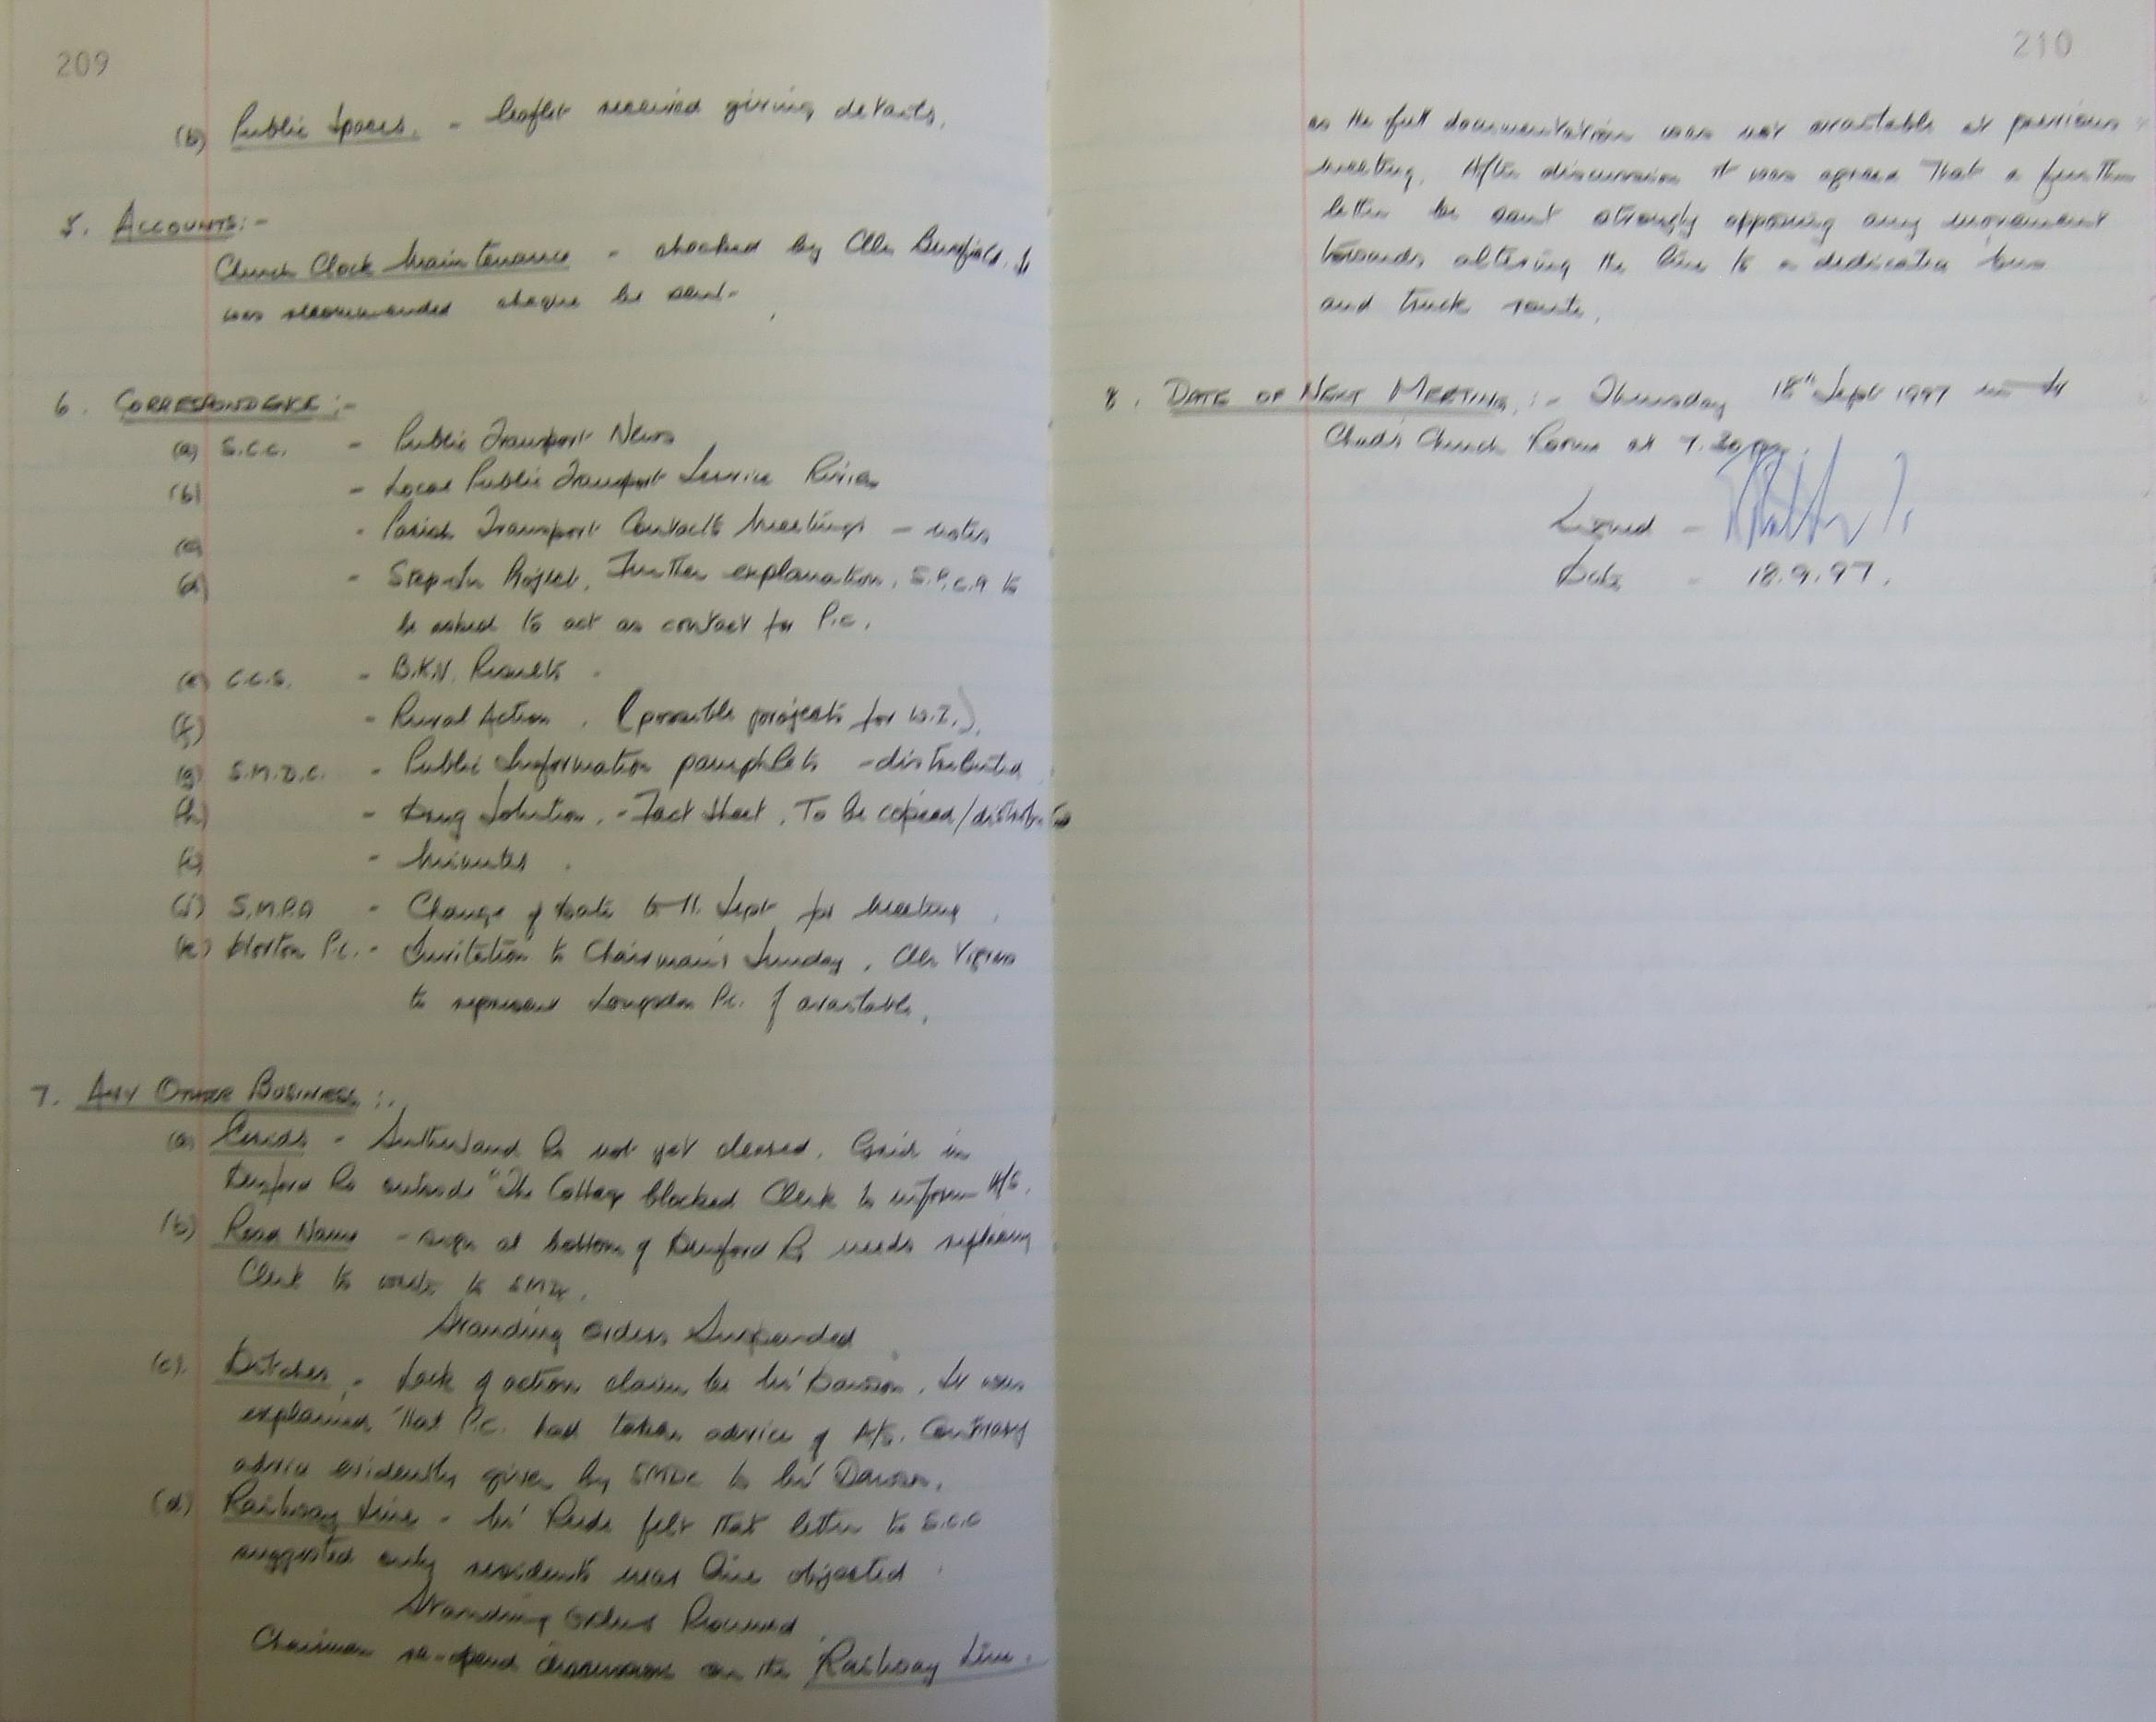 209
(b) Public Spaces. - leaflet received giving details.
5. ACCOUNTS:-
Church Clock Maintenance - checked by Cllr It
was recommended cheque be sent.
6. CORRESPONDENCE:-
(a) S.C.C. - Public Transport News
(b) - Local Public Transport Service Review
(c) - Parish Transport Contacts Meetings - notes
(d) - Step-In Project. Further explanation. S.P.C.A to
be asked to act as contact for P.C.
(e) C.C.S. - B.K.V. Results.
(f) - Rural Action. (possible projects for W.I.).
(g) S.M.D.C. - Public Information pamphlets - distributed
(h) - Drug Solution. - Fact Sheet. To be copied/distributed
(i) - Minutes.
(j) S.M.P.A - Change of date to 11. Sept for Meeting.
(k) Horton P.C. - Invitation to Chairman's Sunday. Cllr
to represent Longsdon P.C. if available.
7. ANY OTHER BUSINESS:-
(a) Grids - Sutherland Rd not yet cleared. Grid in
Denford Rd outside "The Cottage blocked Clerk to inform H/S.
(b) Road Name - sign at bottom of Denford Rd needs replacing
Clerk to write to SMDC.
Standing Orders Suspended
(c). Ditches. - Lack of action claim be Mr Dawson. It was
explained that P.C. had taken advice of H/S. Contrary
advice evidently given by SMDC to Mr Dawson.
(d) Railway Line - Mr felt that letter to S.C.C
suggested only residents near line objected.
Standing Orders Resumed
Chairman re-opened discussion on the Railway Line.
210
as the full documentation was not available at previous
meeting. After discussion it was agreed that a further
letter be sent strongly opposing any movement
towards altering the line to a dedicated bus
and truck route.
8. DATE OF NEXT MEETING:- Thursday 18th Sept 1997 in St
Chad's Church Room at 7.30 pm.
Signed -
Date - 18.9.97.